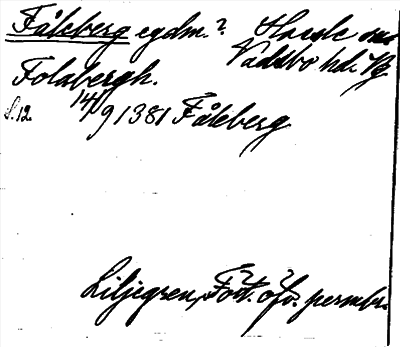 Fåleberg egdm.? Hassle sn
Vadsbo hd. Vg.
Folabergh.
f. 12. 14/9 1381 Fåleberg
Liljegren, Fört. öfv. permbr.